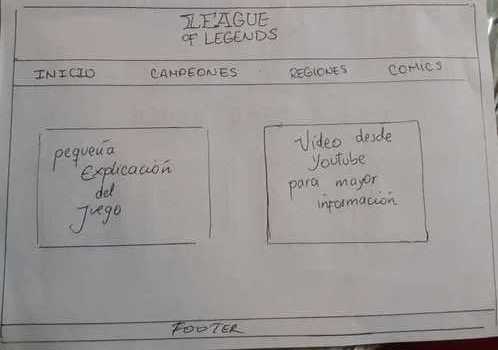 LEAGUE
OF LEGENDS
INICIO CAMPEONES REGIONES COMICS
pequeña
Explicación
del
Juego
Vídeo desde
Youtube
para mayor
información
FOOTER